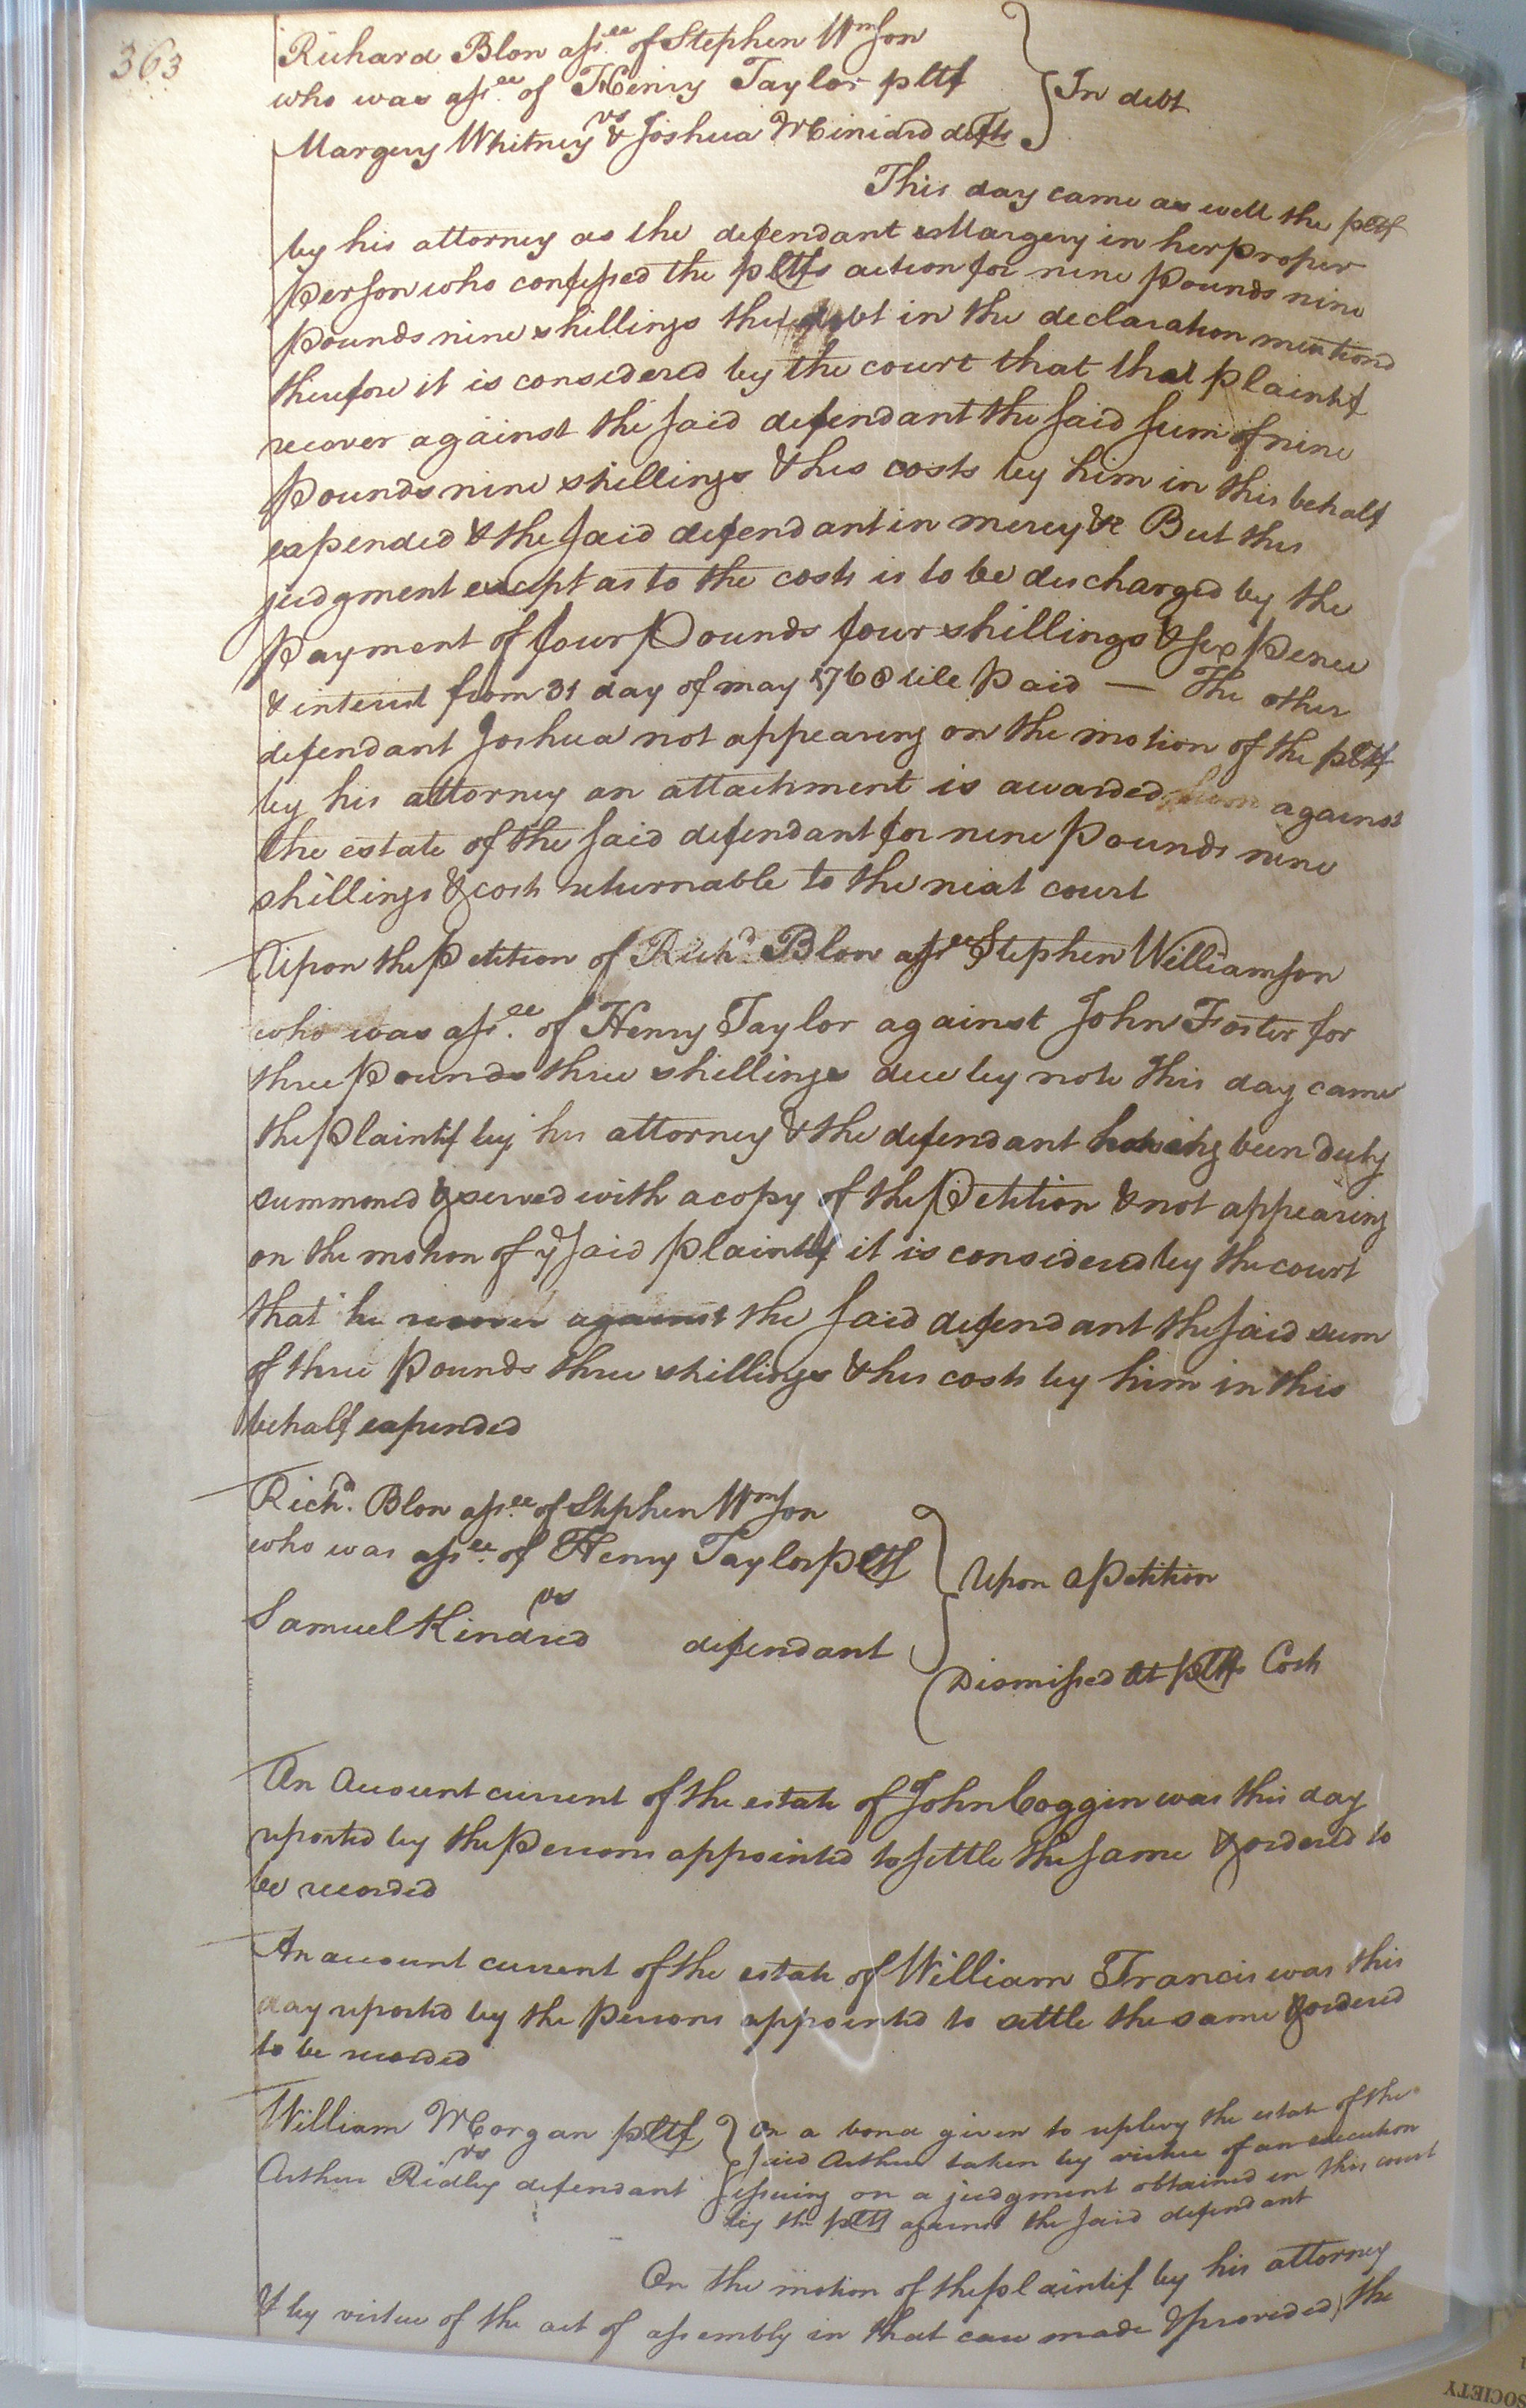 363
Richard Blow assee. of Stephen Wmson
who was assee. of Henry Taylor pltf
vs
Margery Whitney & Joshua Miniard defts
In debt
This day came as well the pltf
by his attorney as the defendant Margery in her proper
person who confessed the pltfs action for nine pounds nine
pounds nine shillings the debt in the declaration mentiond
therefore it is considered by the court that that plaintif
recover against the said defendant the said sum of nine
pounds nine shillings & his costs by him in this behalf
expended & the said defendant in mercy &c But this
judgment except as to the costs is to be discharged by the
Payment of four Pounds four shillings & six Pence
& interest from 31 day of may 1768 till paid — The other
defendant Joshua not appearing on the motion of the pltf
by his attorney an attachment is awarded against
the estate of the said defendant for nine Pounds nine
shillings & costs returnable to the next court
Upon the Petition of Richd. Blow assee Stephen Williamson
who was assee. of Henry Taylor against John Foster for
three Pounds three shillings due by note This day came
the Plaintif by his attorney & the defendant having been duly
summoned & served with a copy of the Petition & not appearing
on the motion of ye said plaintif it is considered by the court
that he recover against the said defendant the said sum
of three pounds three shillings & his costs by him in this
behalf expended
Richd. Blow assee. of Stephen Wmson
who was assee. of Henry Taylor pltf
vs
Samuel Kindred defendant
Upon a Petition
Dismissed at pltfs Costs
An Account current of the estate of John Coggin was this day
reported by the Persons appointed to settle the same & ordered to
be recorded
An account current of the estate of William Francis was this
day reported by the persons appointed to settle the same & ordered
to be recorded
William Morgan pltf
vs
Arthur Ridley defendant
On a bond given to replevy the estate of the
said Arthur taken by virtue of an execution
issuing on a judgment obtained in this court
by the pltf against the said defendant
On the motion of the plaintif by his attorney
& by virtue of the act of assembly in that case made & provided, the
SOCIETY